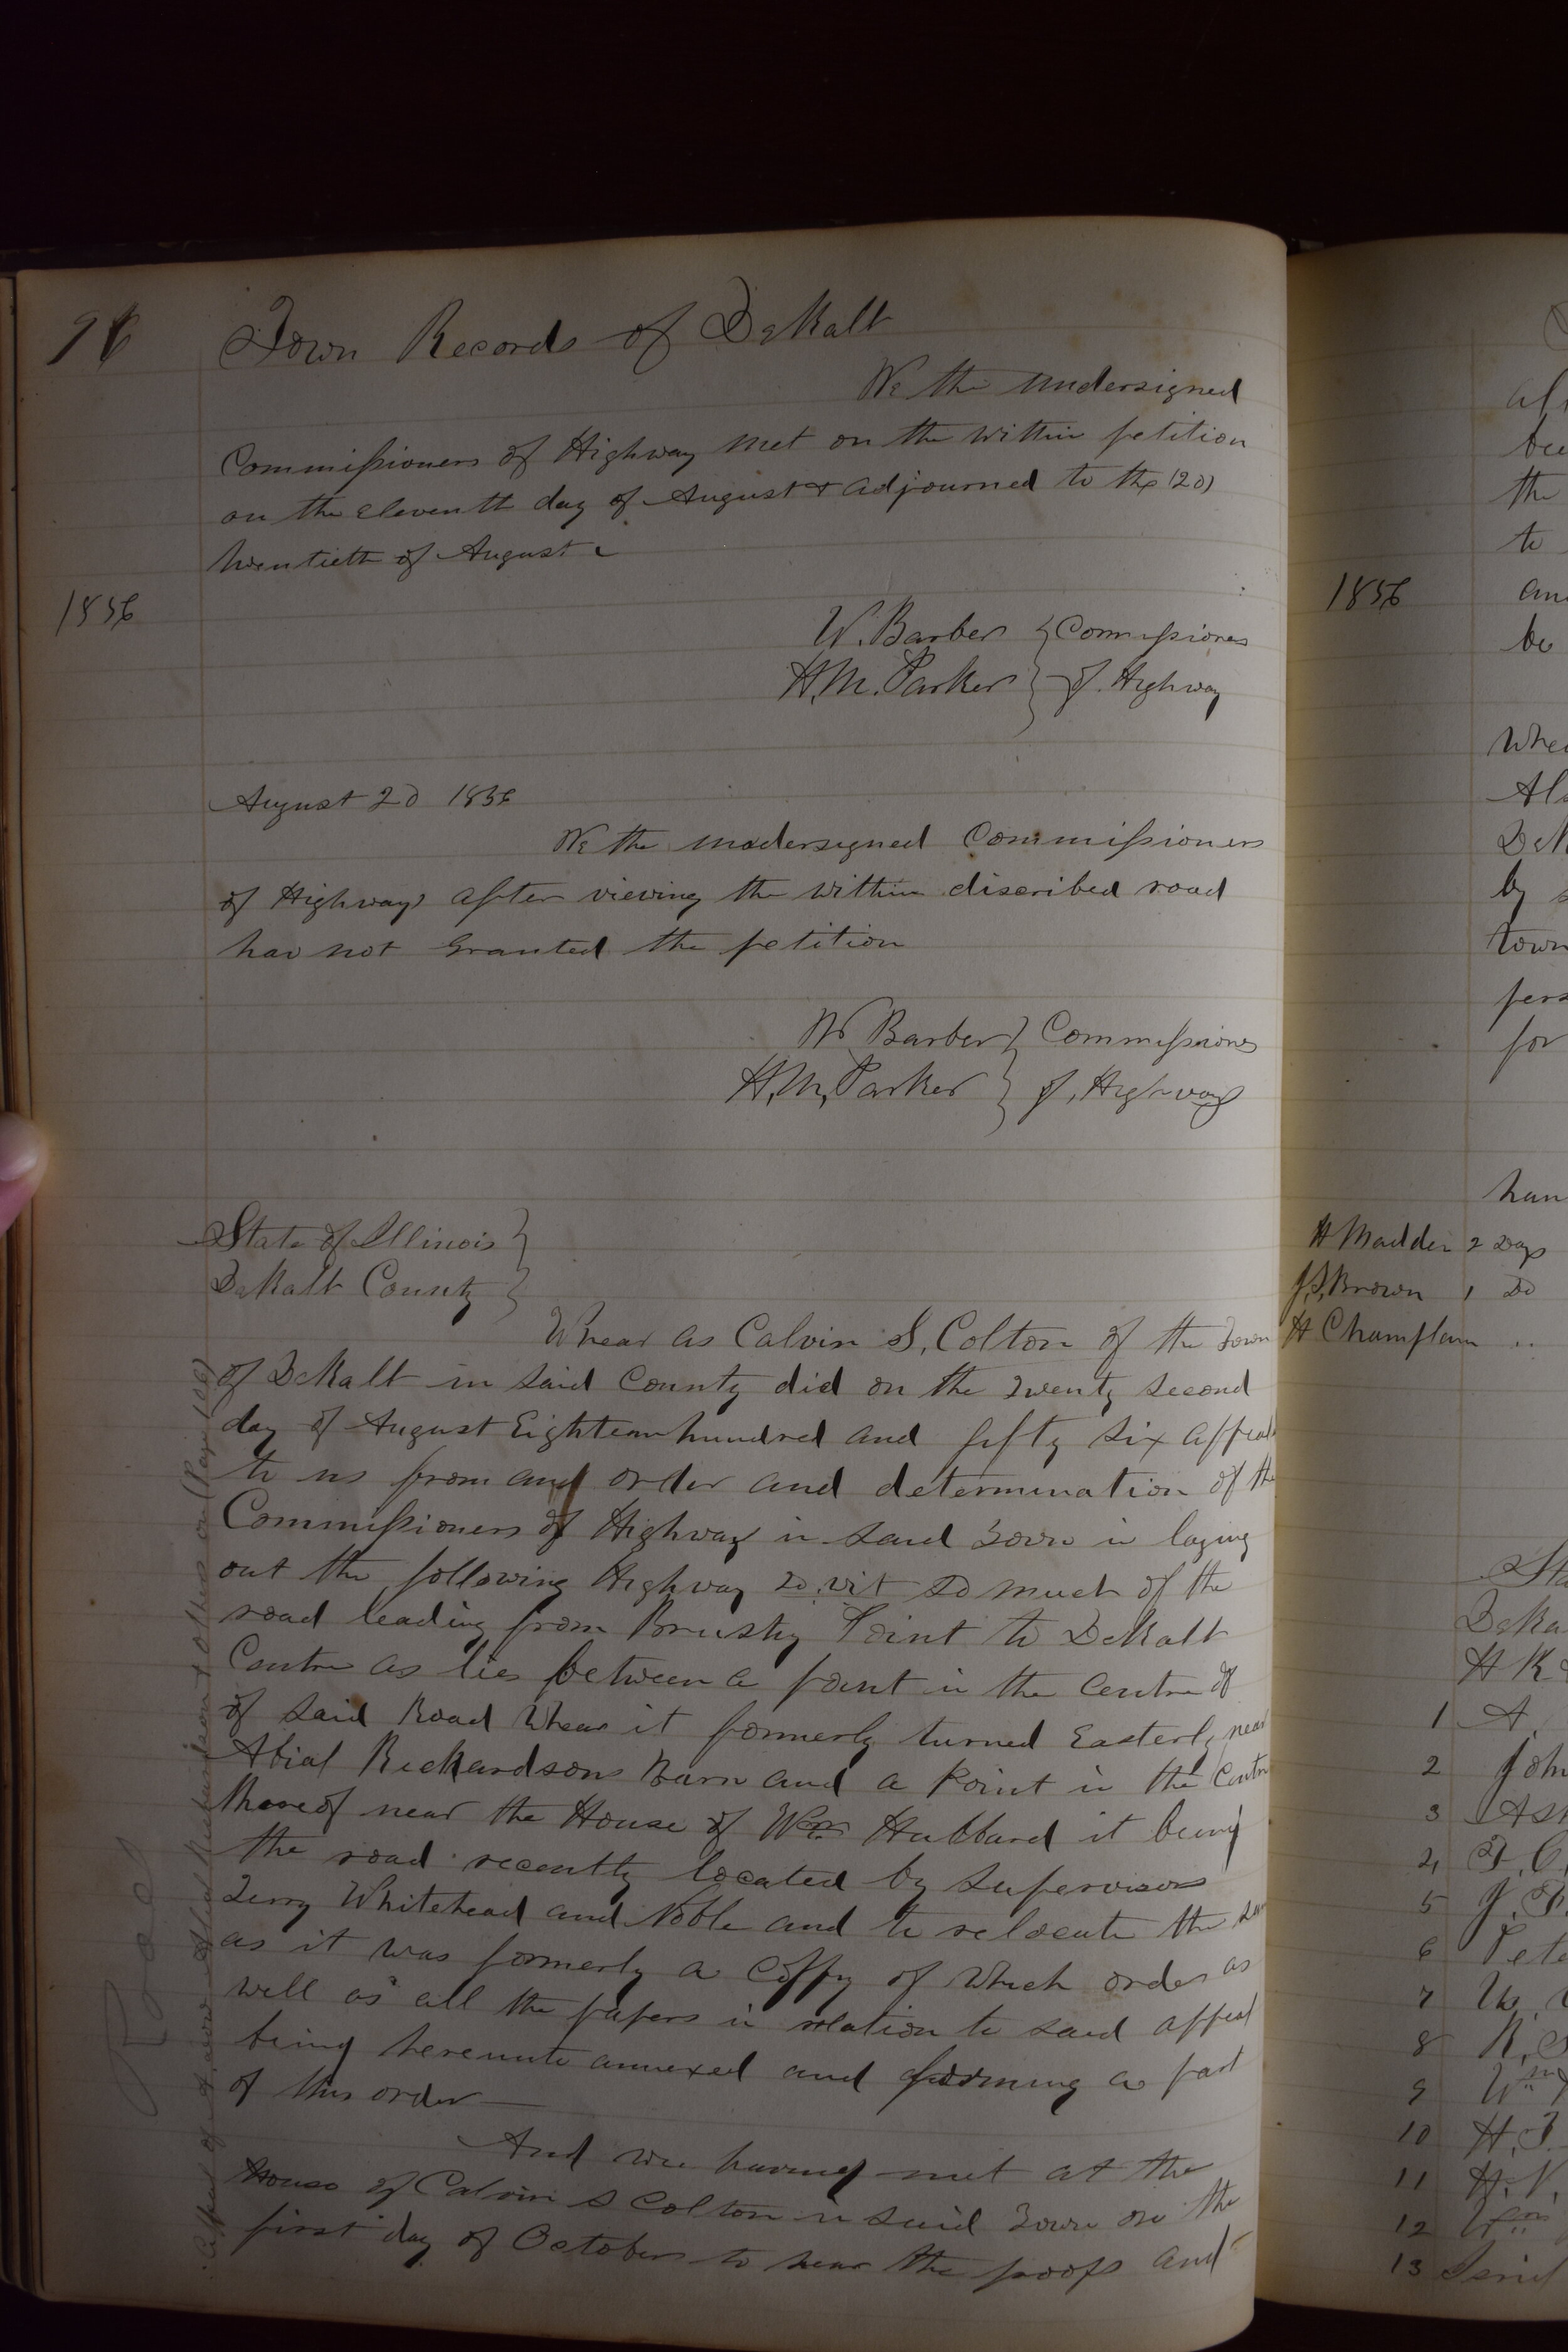 96 Town Records of DeKalb
We the undersigned
Commissioners of Highway met on the within petition
on the eleventh day of August & adjourned to the (20)
twentieth of August
1856
W. Barber } Commissiones
H.M. Parker } of Highway
August 20 1856
We the undersigned Commissioners
of Highways after viewing the within discribed road
has not Granted the petition
W Barber } Commissiones
H.M. Parker } of Highway
State of Illinois }
DeKalb County }
Whear as Calvin S, Colton of the Town
of DeKalb in said County did on the twenty second
day of August Eighteen hundred and fifty six appeal
to us from and order and determination of the
Commissioners of Highway in said Town in laying
out the following Highway to wit so much of the
road leading from Brushy Point to DeKalb
Centre as lies between a point in the Centre of
of said Road Whear it formerly turned Easterly near
Abial Richardsons Barn and a Point in the Centre
thereof near the House of Wm Hubbard it being
the road recently located by Supervisors
Terry Whitehead and Noble and to relocate the
as it was formerly a Coppy of Which order as
well as all the papers in relation to said appeal
being hereunto annexed and forming a part
of this order
And we having met at the
House of Calvin S Colton in said Town on the
first day of October to hear the proofs and
Road
1856
H Madden 2 Days
J.S. Brown 1 Do
H Champlain ..
the
to
be
by
for
H K
1 A.
2 John
3
4
5
6 Pete
7
8
9 Wm
10
11
12 Wm
13